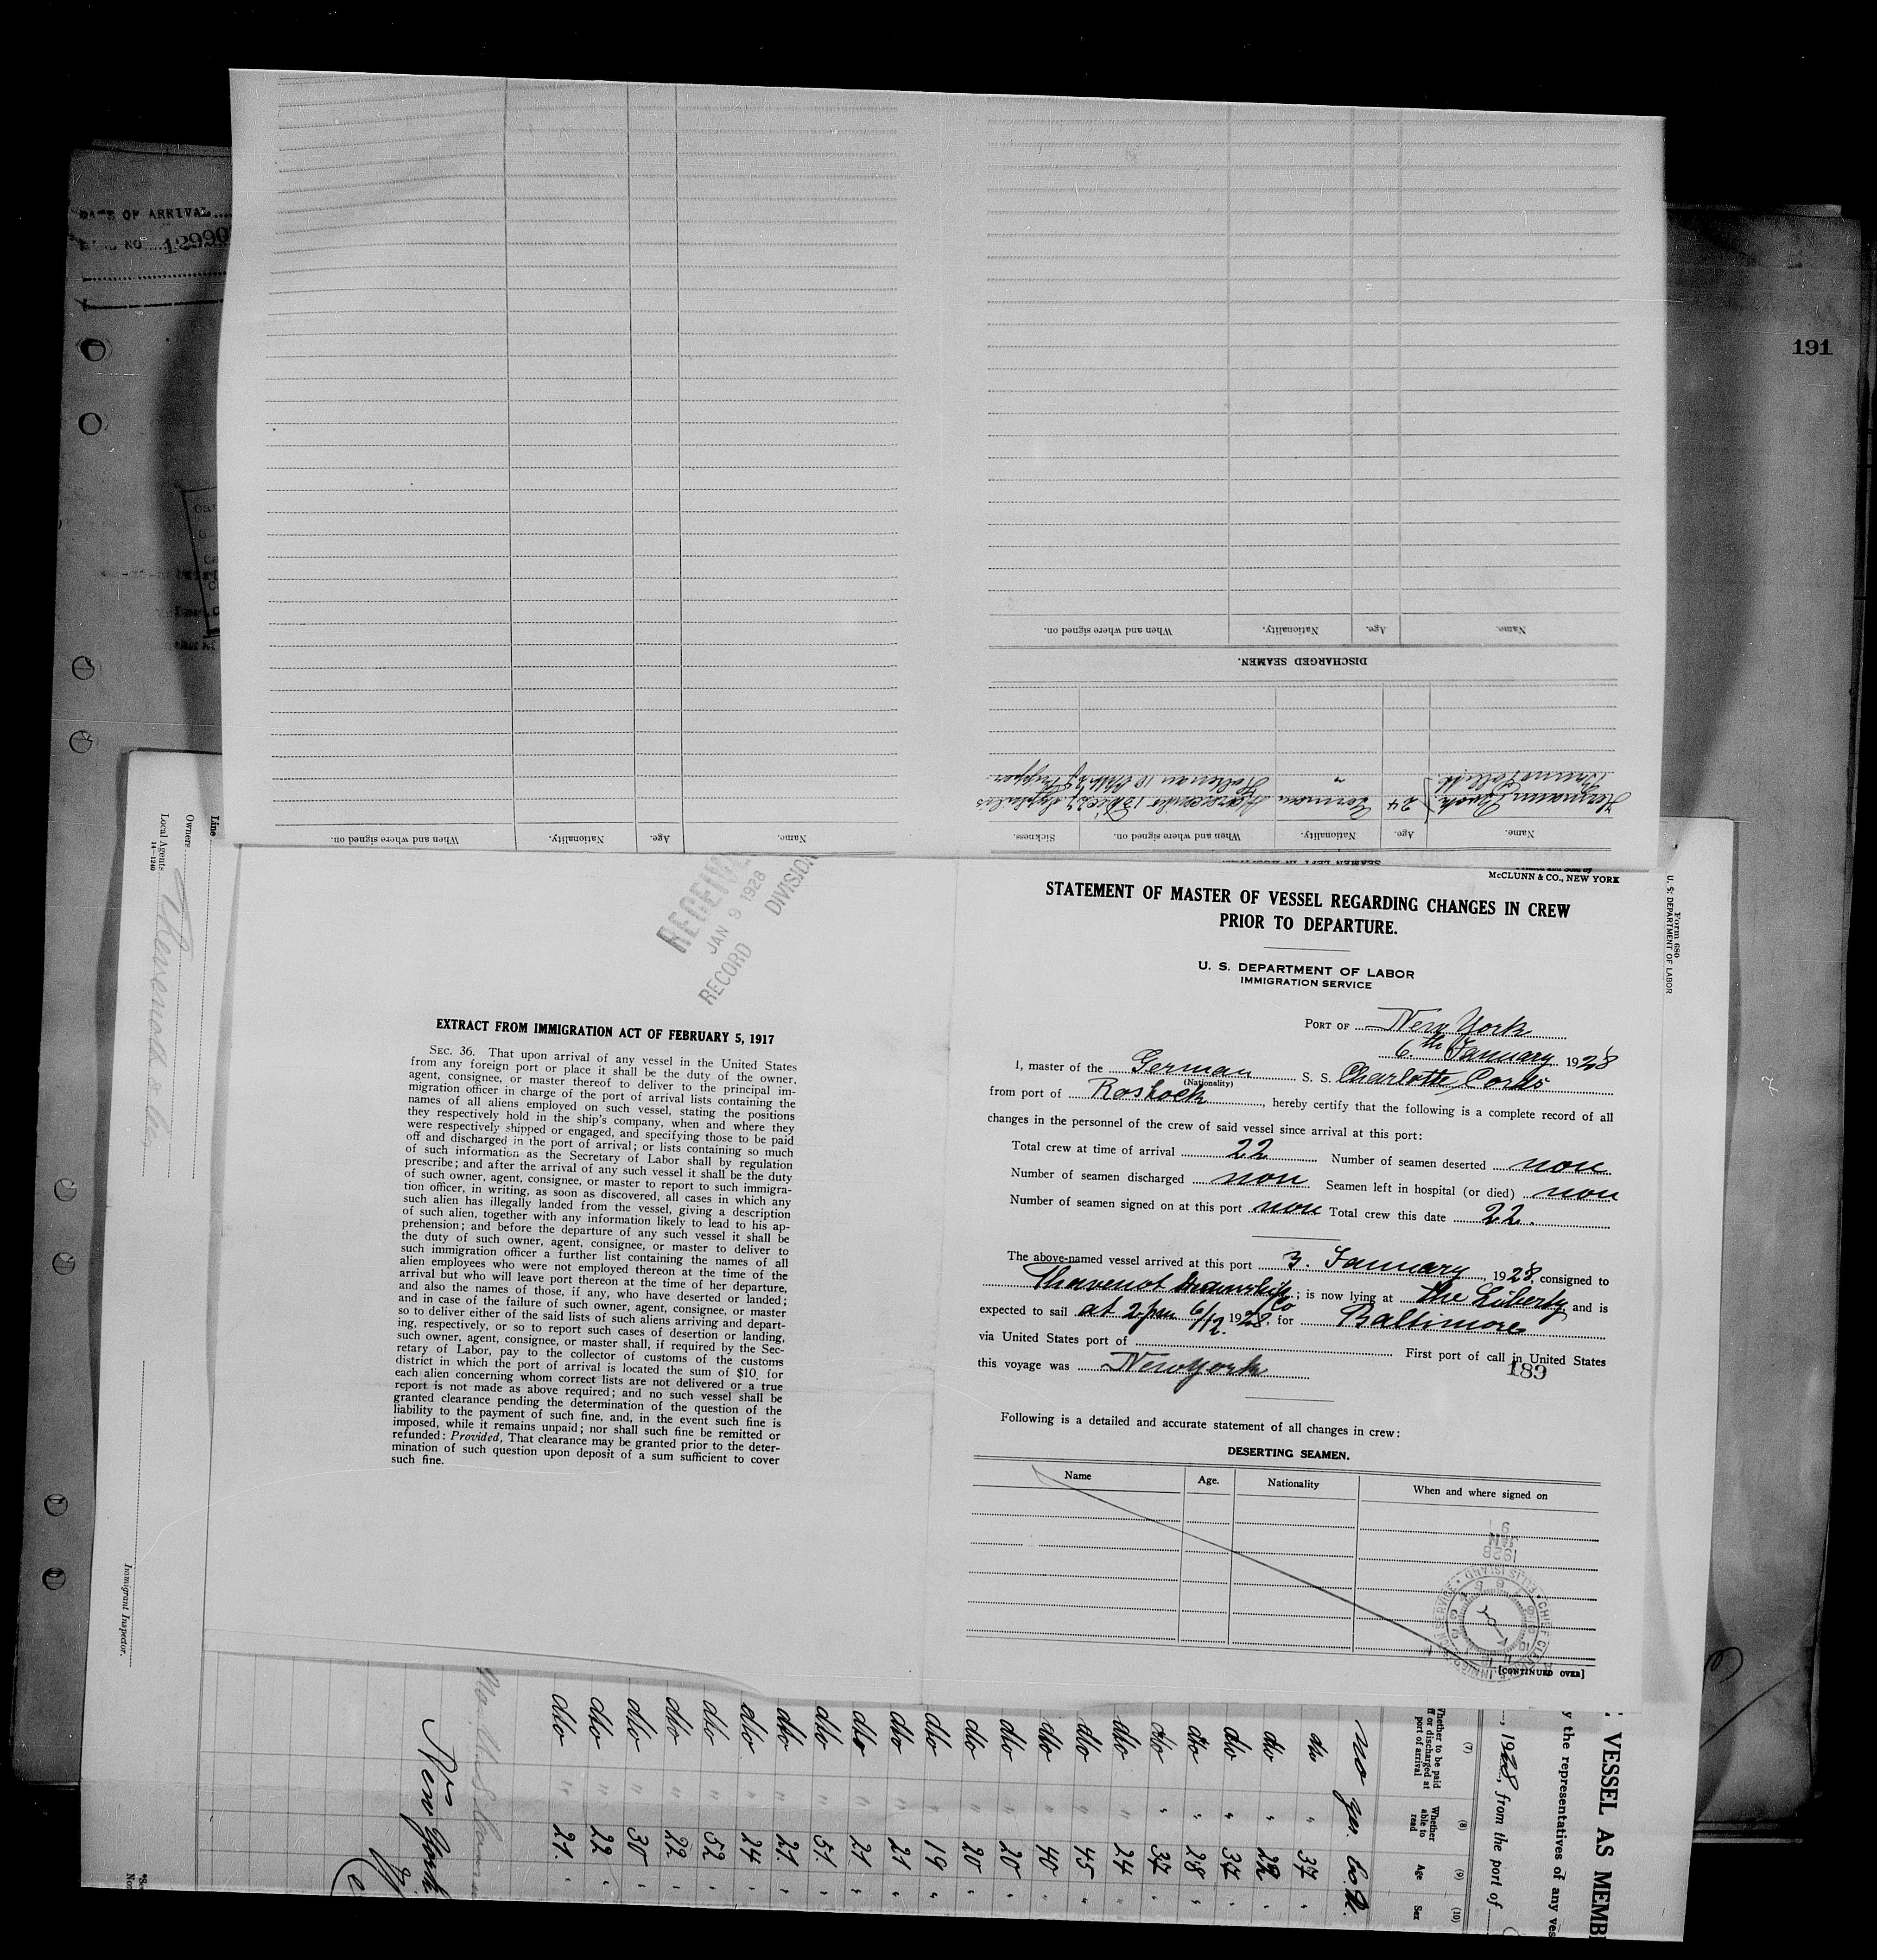 DATE OF ARRIVAL
NO 12990
191
When and where signed on.
Nationality.
Age.
Name.
DISCHARGED SEAMEN.
Name.
Age.
Nationality.
When and where signed on.
Name.
Age.
Nationality.
When and where signed on.
Sickness.
24 German
"
Name.
Age.
Nationality.
When and where signed on.
SEAMEN LEFT IN
McCLUNN & CO., NEW YORK
STATEMENT OF MASTER OF VESSEL REGARDING CHANGES IN CREW
PRIOR TO DEPARTURE.
U. S. DEPARTMENT OF LABOR
IMMIGRATION SERVICE
PORT OF New York
6th January 1928
I, master of the German S. S. Charlotte Cords
(Nationality)
from port of Rostock, hereby certify that the following is a complete record of all
changes in the personnel of the crew of said vessel since arrival at this port:
Total crew at time of arrival 22 Number of seamen deserted non
Number of seamen discharged non Seamen left in hospital (or died) non
Number of seamen signed on at this port non Total crew this date 22.
The above-named vessel arrived at this port 3. January, 1928, consigned to
; is now lying at the Liberty and is
expected to sail at 2 pm 1928, for Baltimore
via United States port of First port of call in United States
this voyage was New York
189
Following is a detailed and accurate statement of all changes in crew:
DESERTING SEAMEN.
Name Age. Nationality When and where signed on
JAN
1928
[CONTINUED OVER]
RECEIVED
JAN 9 1928
RECORD DIVISION
EXTRACT FROM IMMIGRATION ACT OF FEBRUARY 5, 1917
SEC. 36. That upon arrival of any vessel in the United States
from any foreign port or place it shall be the duty of the owner,
agent, consignee, or master thereof to deliver to the principal im-
migration officer in charge of the port of arrival lists containing the
names of all aliens employed on such vessel, stating the positions
they respectively hold in the ship's company, when and where they
were respectively shipped or engaged, and specifying those to be paid
off and discharged in the port of arrival; or lists containing so much
of such information as the Secretary of Labor shall by regulation
prescribe; and after the arrival of any such vessel it shall be the duty
of such owner, agent, consignee, or master to report to such immigra-
tion officer, in writing, as soon as discovered, all cases in which any
such alien has illegally landed from the vessel, giving a description
of such alien, together with any information likely to lead to his ap-
prehension; and before the departure of any such vessel it shall be
the duty of such owner, agent, consignee, or master to deliver to
such immigration officer a further list containing the names of all
alien employees who were not employed thereon at the time of the
arrival but who will leave port thereon at the time of her departure,
and also the names of those, if any, who have deserted or landed;
and in case of the failure of such owner, agent, consignee, or master
so to deliver either of the said lists of such aliens arriving and depart-
ing, respectively, or so to report such cases of desertion or landing,
such owner, agent, consignee, or master shall, if required by the Sec-
retary of Labor, pay to the collector of customs of the customs
district in which the port of arrival is located the sum of $10 for
each alien concerning whom correct lists are not delivered or a true
report is not made as above required; and no such vessel shall be
granted clearance pending the determination of the question of the
liability to the payment of such fine, and, in the event such fine is
imposed, while it remains unpaid; nor shall such fine be remitted or
refunded: Provided, That clearance may be granted prior to the deter-
mination of such question upon deposit of a sum sufficient to cover
such fine.
Line
Owners
Local Agents
14-1240
Immigrant Inspector.
Form 680
U. S. DEPARTMENT OF LABOR
VESSEL AS MEMB
y the representatives of any ves
, 1928, from the port of
(7) (8) (9) (10)
Whether to be paid off or discharged at port of arrival
Whether able to read
Age
Sex
no yes 60 M.
dto " 37 "
dto " 22 "
dto " 37 "
dto " 28 "
dto " 37 "
dto " 24 "
dto " 45 "
dto " 40 "
dto " 20 "
dto " 20 "
dto " 19 "
dto " 21 "
dto " 21 "
dto " 51 "
dto " 21 "
dto " 24 "
dto " 52 "
dto " 22 "
dto " 30 "
dto " 22 "
dto " 21 "
New York